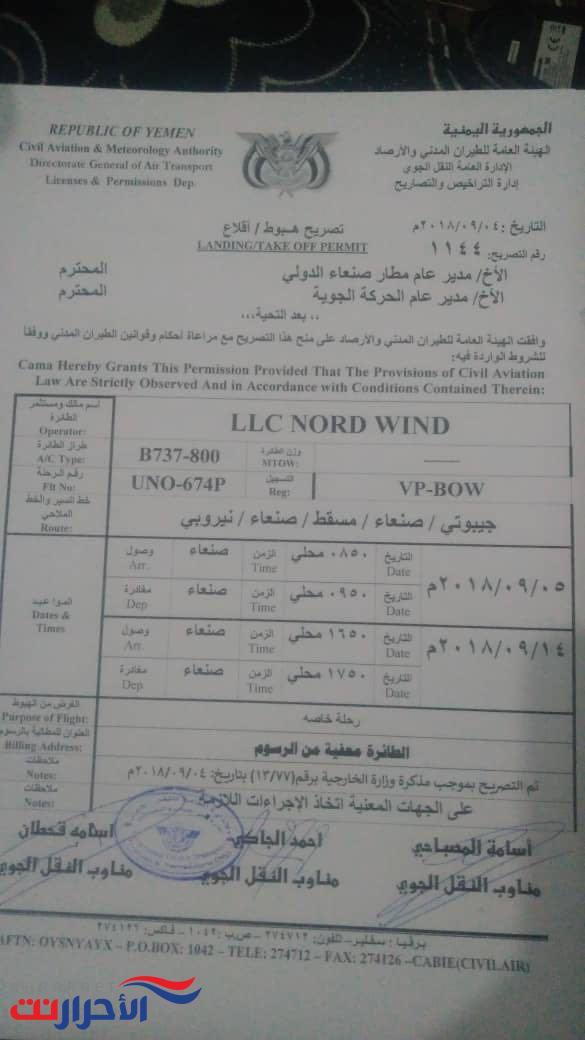 REPUBLIC OF YEMEN
Civil Aviation & Meteorology Authority
Directorate General of Air Transport
Licenses & Permissions Dep
الجمهورية اليمنية
الهيئة العامة للطيران المدني والأرصاد
الإدارة العامة النقل الجوي
إدارة التراخيص والتصاريح
التاريخ : ٢٠١٨/٠٩/٠٤م
رقم التصريح: ١١٤٤
تصريح هبوط / أقلاع
LANDING/TAKE OFF PERMIT
الأخ/ مدير عام مطار صنعاء الدولي المحترم
الأخ/ مدير عام الحركة الجوية المحترم
،، بعد التحية،،،
وافقت الهيئة العامة للطيران المدني والأرصاد على منح هذا التصريح مع مراعاة أحكام وقوانين الطيران المدني ووفقاً
للشروط الواردة فيه:
Cama Hereby Grants This Permission Provided That The Provisions of Civil Aviation
Law Are Strictly Observed And in Accordance with Conditions Contained Therein:
اسم مالك ومستثمر
الطائرة
Operator:
LLC NORD WIND
طراز الطائرة
A/C Type:
B737-800
وزن الطائرة
MTOW:
رقم الرحلة
Flt No:
UNO-674P
التسجيل
Reg:
VP-BOW
خط السير والخط
الملاحي
Route:
جيبوتي / صنعاء / مسقط / صنعاء / نيروبي
المواعيد
Dates &
Times
وصول
Arr.
صنعاء
الزمن
Time
٠٨٥٠ محلي
التاريخ
Date
٢٠١٨/٠٩/٠٥م
مغادرة
Dep
صنعاء
الزمن
Time
٠٩٥٠ محلي
التاريخ
Date
وصول
Arr.
صنعاء
الزمن
Time
١٦٥٠ محلي
التاريخ
Date
٢٠١٨/٠٩/١٤م
مغادرة
Dep
صنعاء
الزمن
Time
١٧٥٠ محلي
التاريخ
Date
الغرض من الهبوط
Purpose of Flight:
رحلة خاصه
العنوان للمطالبة بالرسوم
Billing Address:
الطائرة معفية من الرسوم
ملاحظات
Notes:
تم التصريح بموجب مذكرة وزارة الخارجية برقم(١٣/٧٧) بتاريخ: ٢٠١٨/٠٩/٠٤م
ملاحظات
Notes:
على الجهات المعنية اتخاذ الإجراءات اللازمة
أسامة المصباحي
مناوب النقل الجوي
احمد الجاكي
مناوب النقل الجوي
اسامه قحطان
مناوب النقل الجوي
برقيا: سفلير– تلفون: ٢٧٤٧١٢ – ص.ب: ١٠٤٢– فاكس: ٢٧٤١٢٦
AFTN: OYSNYAYX – P.O.BOX: 1042 – TELE: 274712 – FAX: 274126 –CABIE(CIVILAIR)
الأحرار نت